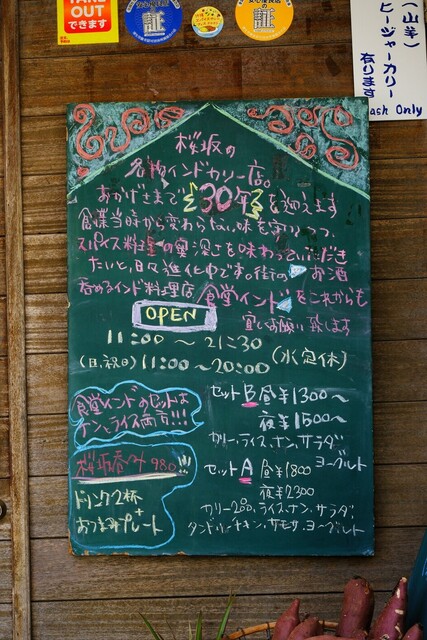 TAKE
OUT
できます
証
証
(山羊)
ヒージャーカリー
有ります
ash Only
桜坂の
名物インドカリー店。
おかげさまで 30年を迎えます
食堂当時から変わらない味を守りつつ、
スパイス料理の奥深さを味わっていただき
たいと、日々進化中です。街の お酒
呑めるインド料理店 食堂インドをこれからも
宜しくお願い致します
OPEN
11:00〜21:30
(日、祝日) 11:00〜20:00 (水定休)
食堂インドのセットは
ナンとライス両方!!!
桜坂呑み 980!!!
ドリンク2杯
+
おつまみプレート
セットB 昼¥1300〜
夜¥1500〜
カリー、ライス、ナン、サラダ
ヨーグルト
セットA 昼¥1800
夜¥2300
カリー2コ、ライス、ナン、サラダ
タンドリーチキン、サモサ、ヨーグルト